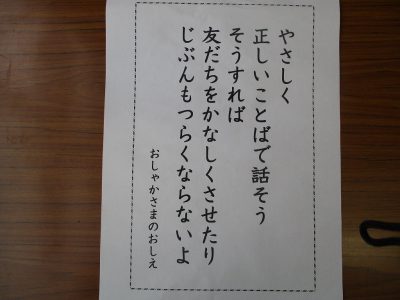 やさしく
正しいことばで話そう
そうすれば
友だちをかなしくさせたり
じぶんもつらくならないよ
おしゃかさまのおしえ